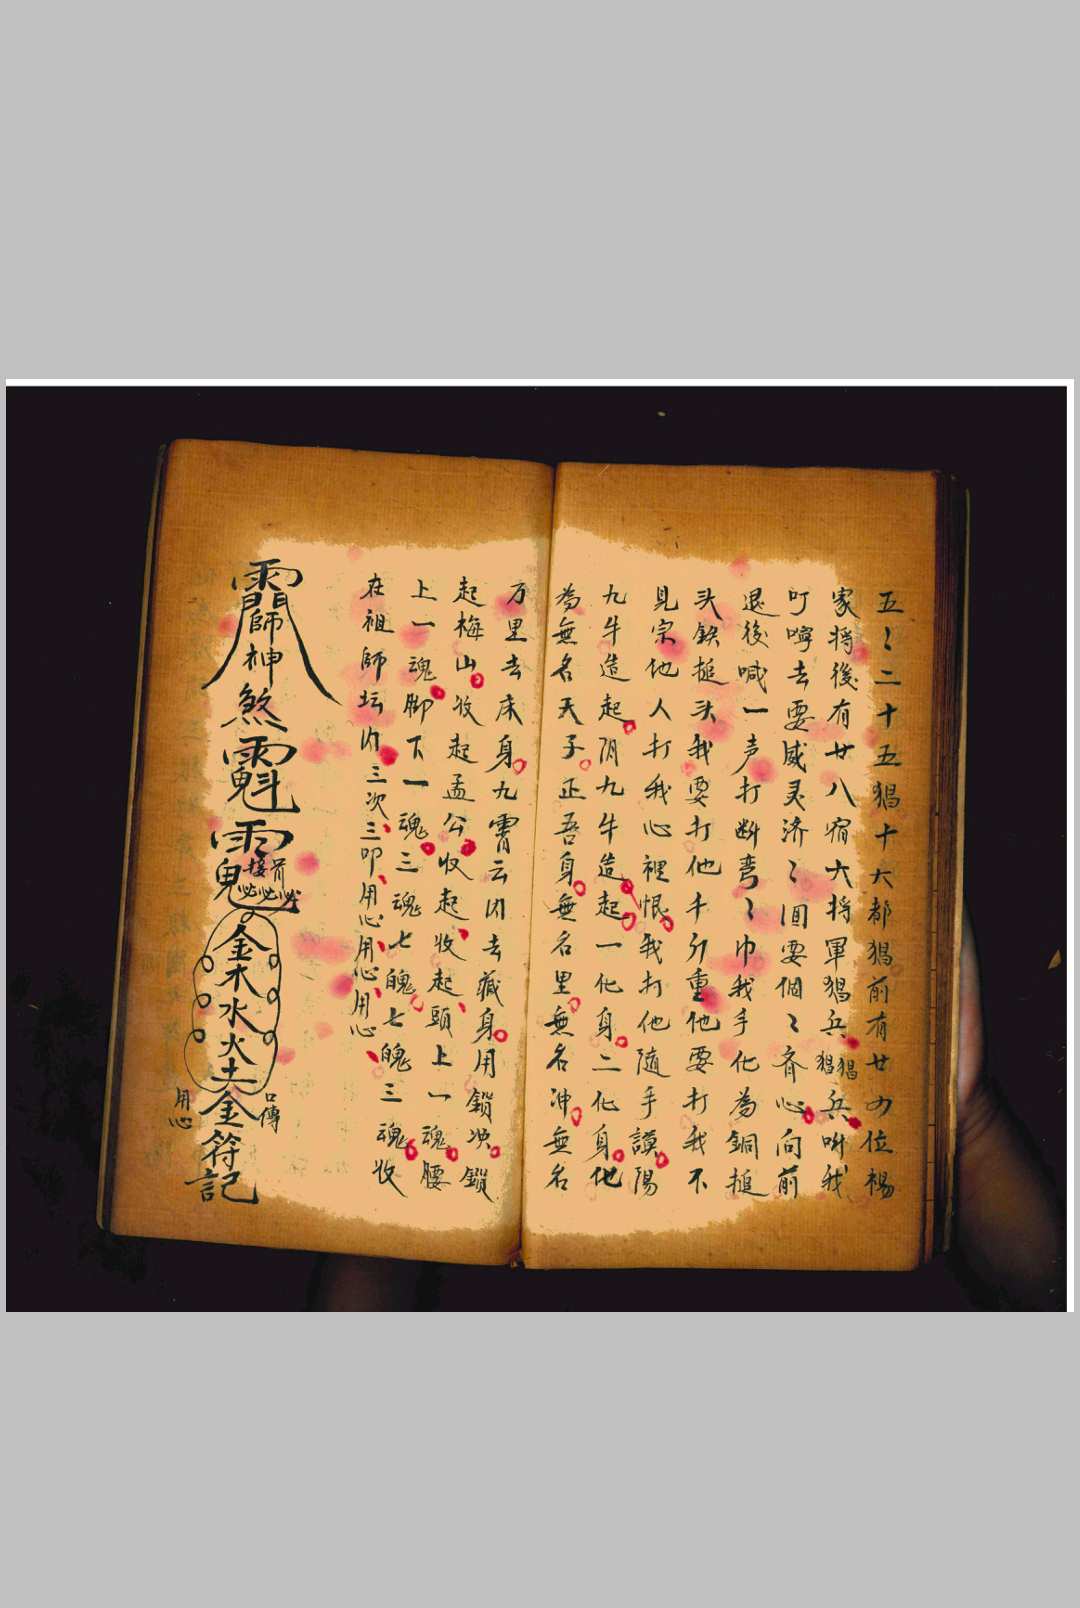 五〻二十五猖十六都猖前有廿四位褐
家将後有廿八宿大将軍猖兵猖猖兵听我
叮嚀去要威灵济〻個要個〻齐心向前
退後喊一声打断弯〻巾我手化為銅搥
头鉄搥头我要打他千斤重他要打我不
見宗他人打我心裡恨我打他隨手謨陽
九牛造起阴九牛造起一化身二化身他
為無名天子正吾身無名里無名冲無名
万里去床身九霄云内去藏身用鎖鎖
起梅山收起孟公收起收起頭上一魂腰
上一魂脚下一魂三魂七魄七魄三魂收
在祖師坛内三次三叩用心用心用心
師神煞
金木水火土金符記
口傳
用心